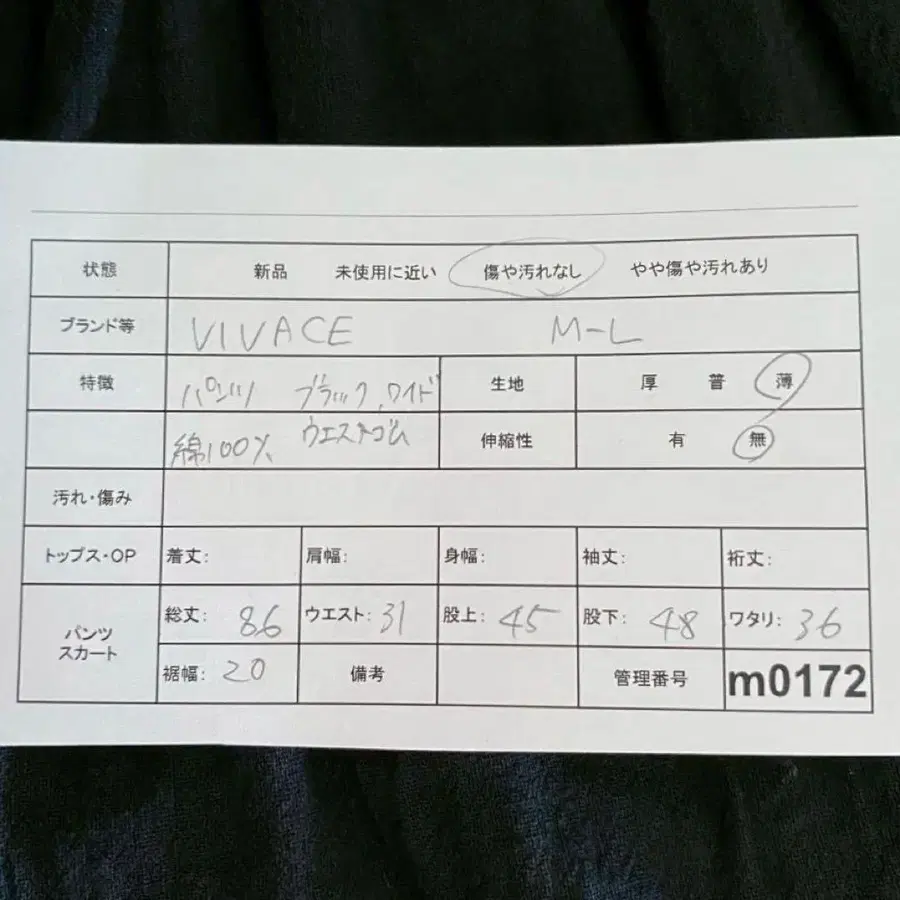 状態 新品 未使用に近い 傷や汚れなし やや傷や汚れあり
ブランド等 VIVACE M-L
特徴 パンツ ブラック、ワイド 生地 厚 普 薄
綿100% ウエストゴム 伸縮性 有 無
汚れ・傷み
トップス・OP 着丈: 肩幅: 身幅: 袖丈: 裄丈:
パンツ
スカート
総丈: 86 ウエスト: 31 股上: 45 股下: 48 ワタリ: 36
裾幅: 20 備考 管理番号 m0172